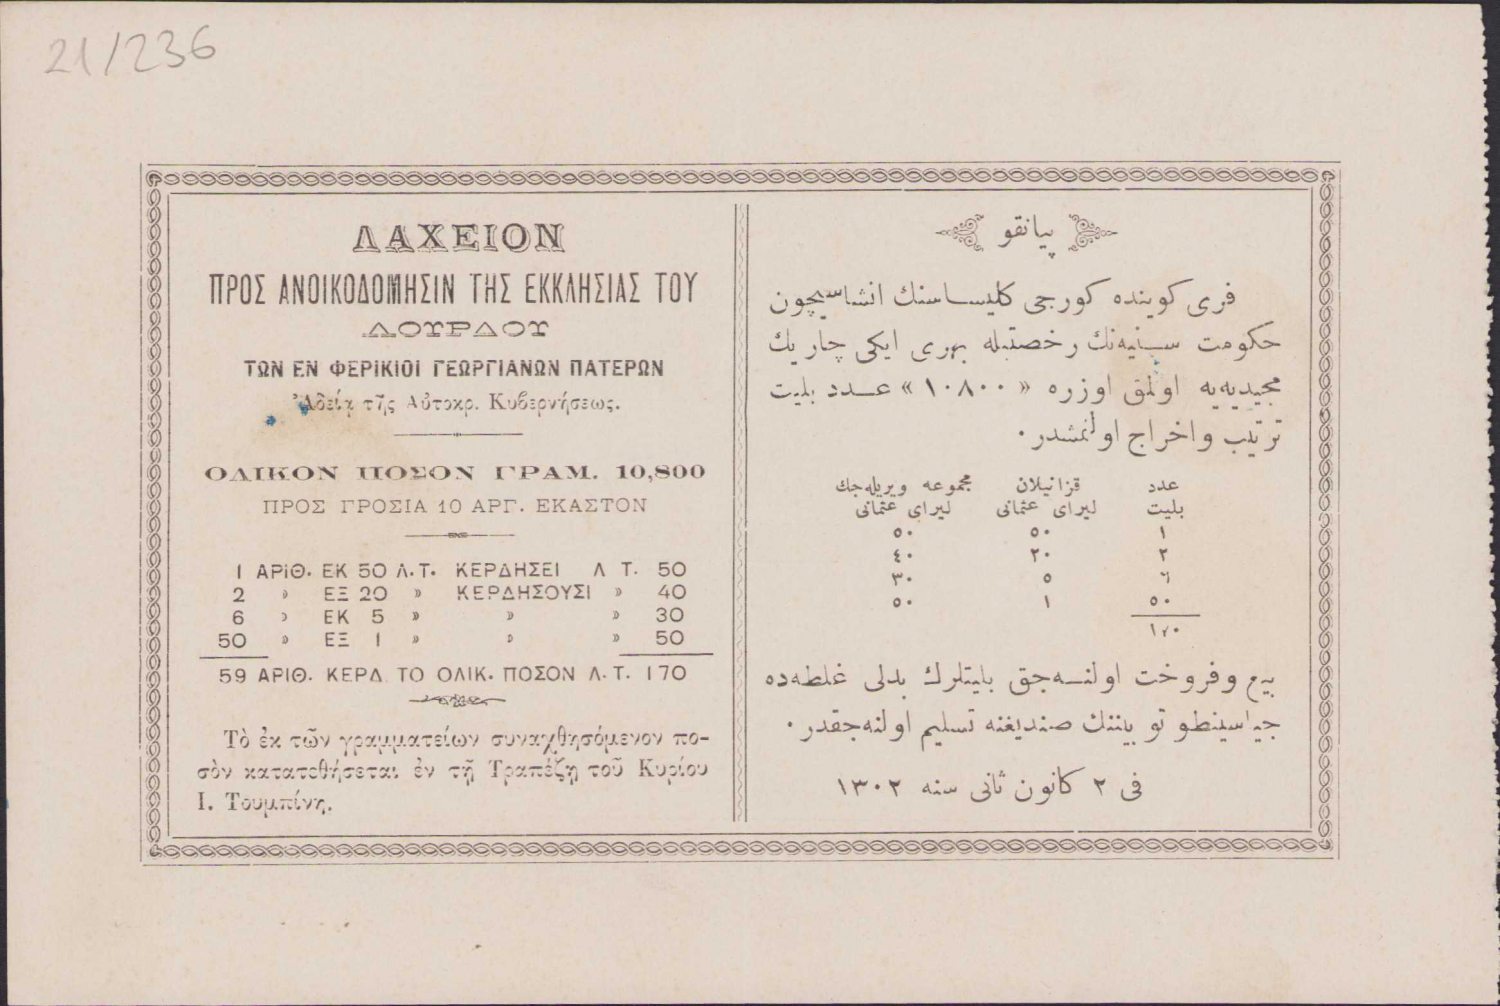 21/236
ΛΑΧΕΙΟΝ
ΠΡΟΣ ΑΝΟΙΚΟΔΟΜΗΣΙΝ ΤΗΣ ΕΚΚΛΗΣΙΑΣ ΤΟΥ
ΛΟΥΡΔΟΥ
ΤΩΝ ΕΝ ΦΕΡΙΚΙΟΙ ΓΕΩΡΓΙΑΝΩΝ ΠΑΤΕΡΩΝ
Ἀδείᾳ τῆς Αὐτοκρ. Κυβερνήσεως.
ΟΛΙΚΟΝ ΠΟΣΟΝ ΓΡΑΜ. 10,800
ΠΡΟΣ ΓΡΟΣΙΑ 10 ΑΡΓ. ΕΚΑΣΤΟΝ
1 ΑΡΙΘ. ΕΚ 50 Λ.Τ. ΚΕΡΔΗΣΕΙ Λ Τ. 50
2 » ΕΞ 20 » ΚΕΡΔΗΣΟΥΣΙ » 40
6 » ΕΚ 5 » » » 30
50 » ΕΞ 1 » » » 50
59 ΑΡΙΘ. ΚΕΡΔ. ΤΟ ΟΛΙΚ. ΠΟΣΟΝ Λ.Τ. 170
Τὸ ἐκ τῶν γραμματείων συναχθησόμενον πο-
σὸν κατατεθήσεται ἐν τῇ Τραπέζῃ τοῦ Κυρίου
Ι. Τουμπίνη.
پيانقو
فری كوينده كورجی كليساسنك انشاسیچون
حكومت سنيه‌نك رخصتيله بهری ايكی چاريك
مجيديه‌يه اولمق اوزره «١٠٨٠٠» عدد بليت
ترتيب واخراج اولنمشدر.
عدد قزانيلان مجموعه ويريله‌جك
بليت ليرای عثمانی ليرای عثمانی
١ ٥٠ ٥٠
٢ ٢٠ ٤٠
٦ ٥ ٣٠
٥٠ ١ ٥٠
١٧٠
بيع وفروخت اولنه‌جق بليتلرك بدلی غلطه‌ده
جياسينطو تو بيننك صنديغنه تسليم اولنه‌جقدر.
فی ٢ كانون ثانی سنه ١٣٠٢